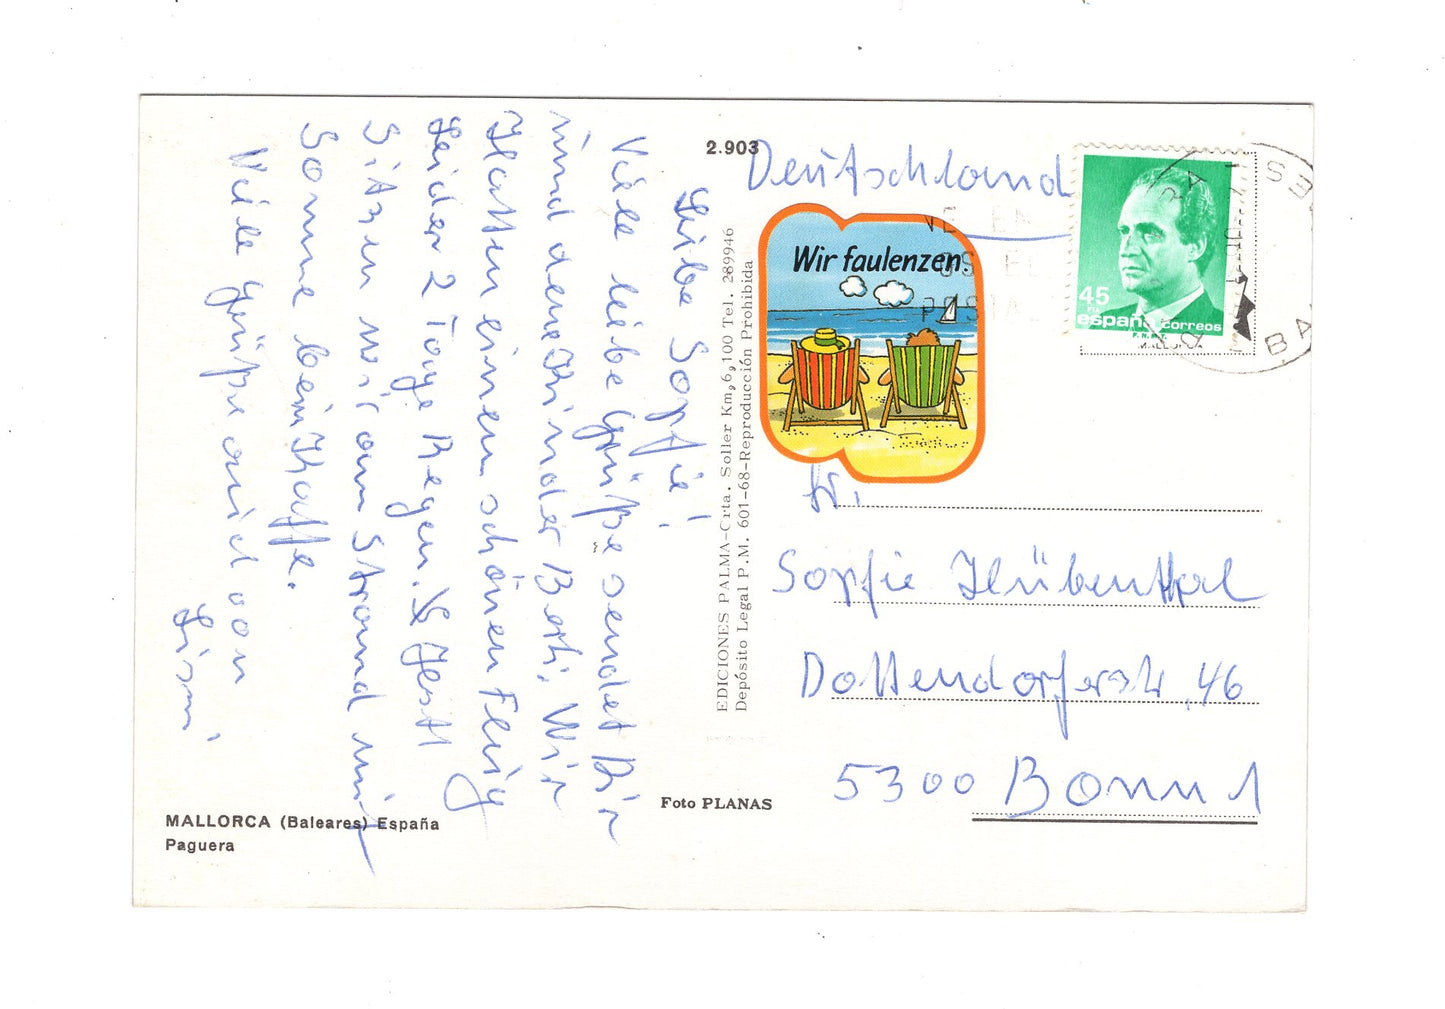 2.903
Deutschland
Wir faulenzen
45
PTA
españa correos
F.N.M.T.
Liebe Sopfie!
Viele liebe Grüße sendet Dir
und deine Kinder Berti. Wir
Hatten einen schönen Flug
Leider 2 Tage Regen. Jestt
Sitzen wir am Strand mit
Sonne beim Kaffe.
Viele Grüße auch von
EDICIONES PALMA-Crta. Soller Km, 6,100 Tel. 289946
Depósito Legal P.M. 601-68-Reproducción Prohibida
Fr.
Sopfie Hübenthal
Dottendorferstr. 46
5300 Bonn 1
Foto PLANAS
MALLORCA (Baleares) España
Paguera